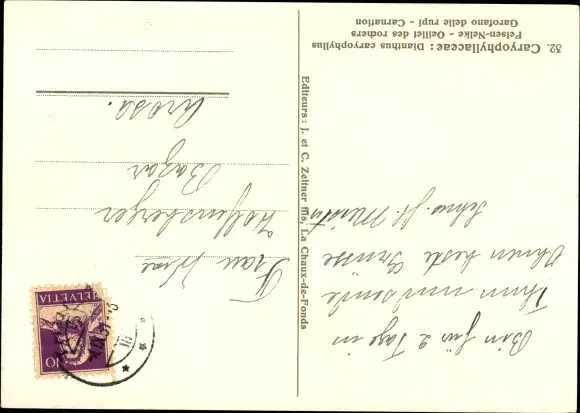 32. Caryophyllaceae: Dianthus caryophyllus
Felsen-Nelke - Oeillet des rochers
Garofano delle rupi - Carnation
Bin für 2 Tage in
Thun und sende
Ihnen beste Grüsse
Schw. St. Moritz
Editeurs: J. et C. Zellner fils, La Chaux-de-Fonds
HELVETIA
10
Frau Wwe
Holfensberger
Bazar
Arosa.